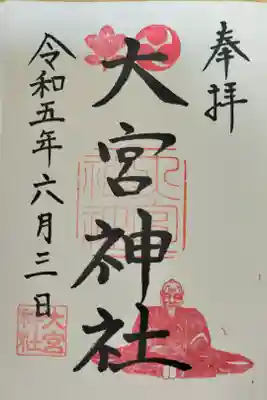 奉拝
大宮神社
令和五年六月三日
大宮
神社
大宮
神社